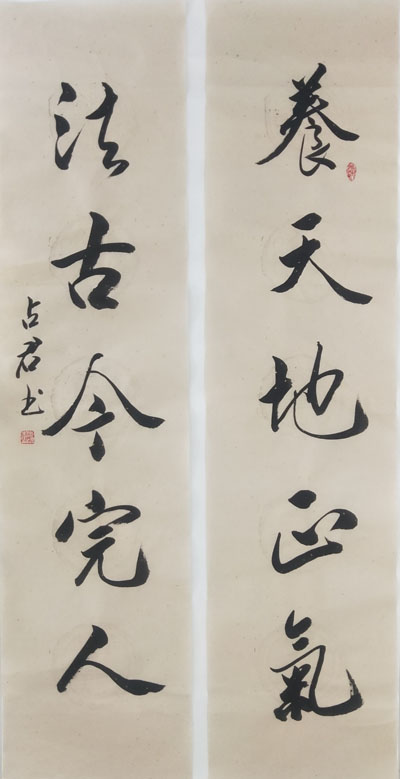 養天地正氣
法古今完人
占君书